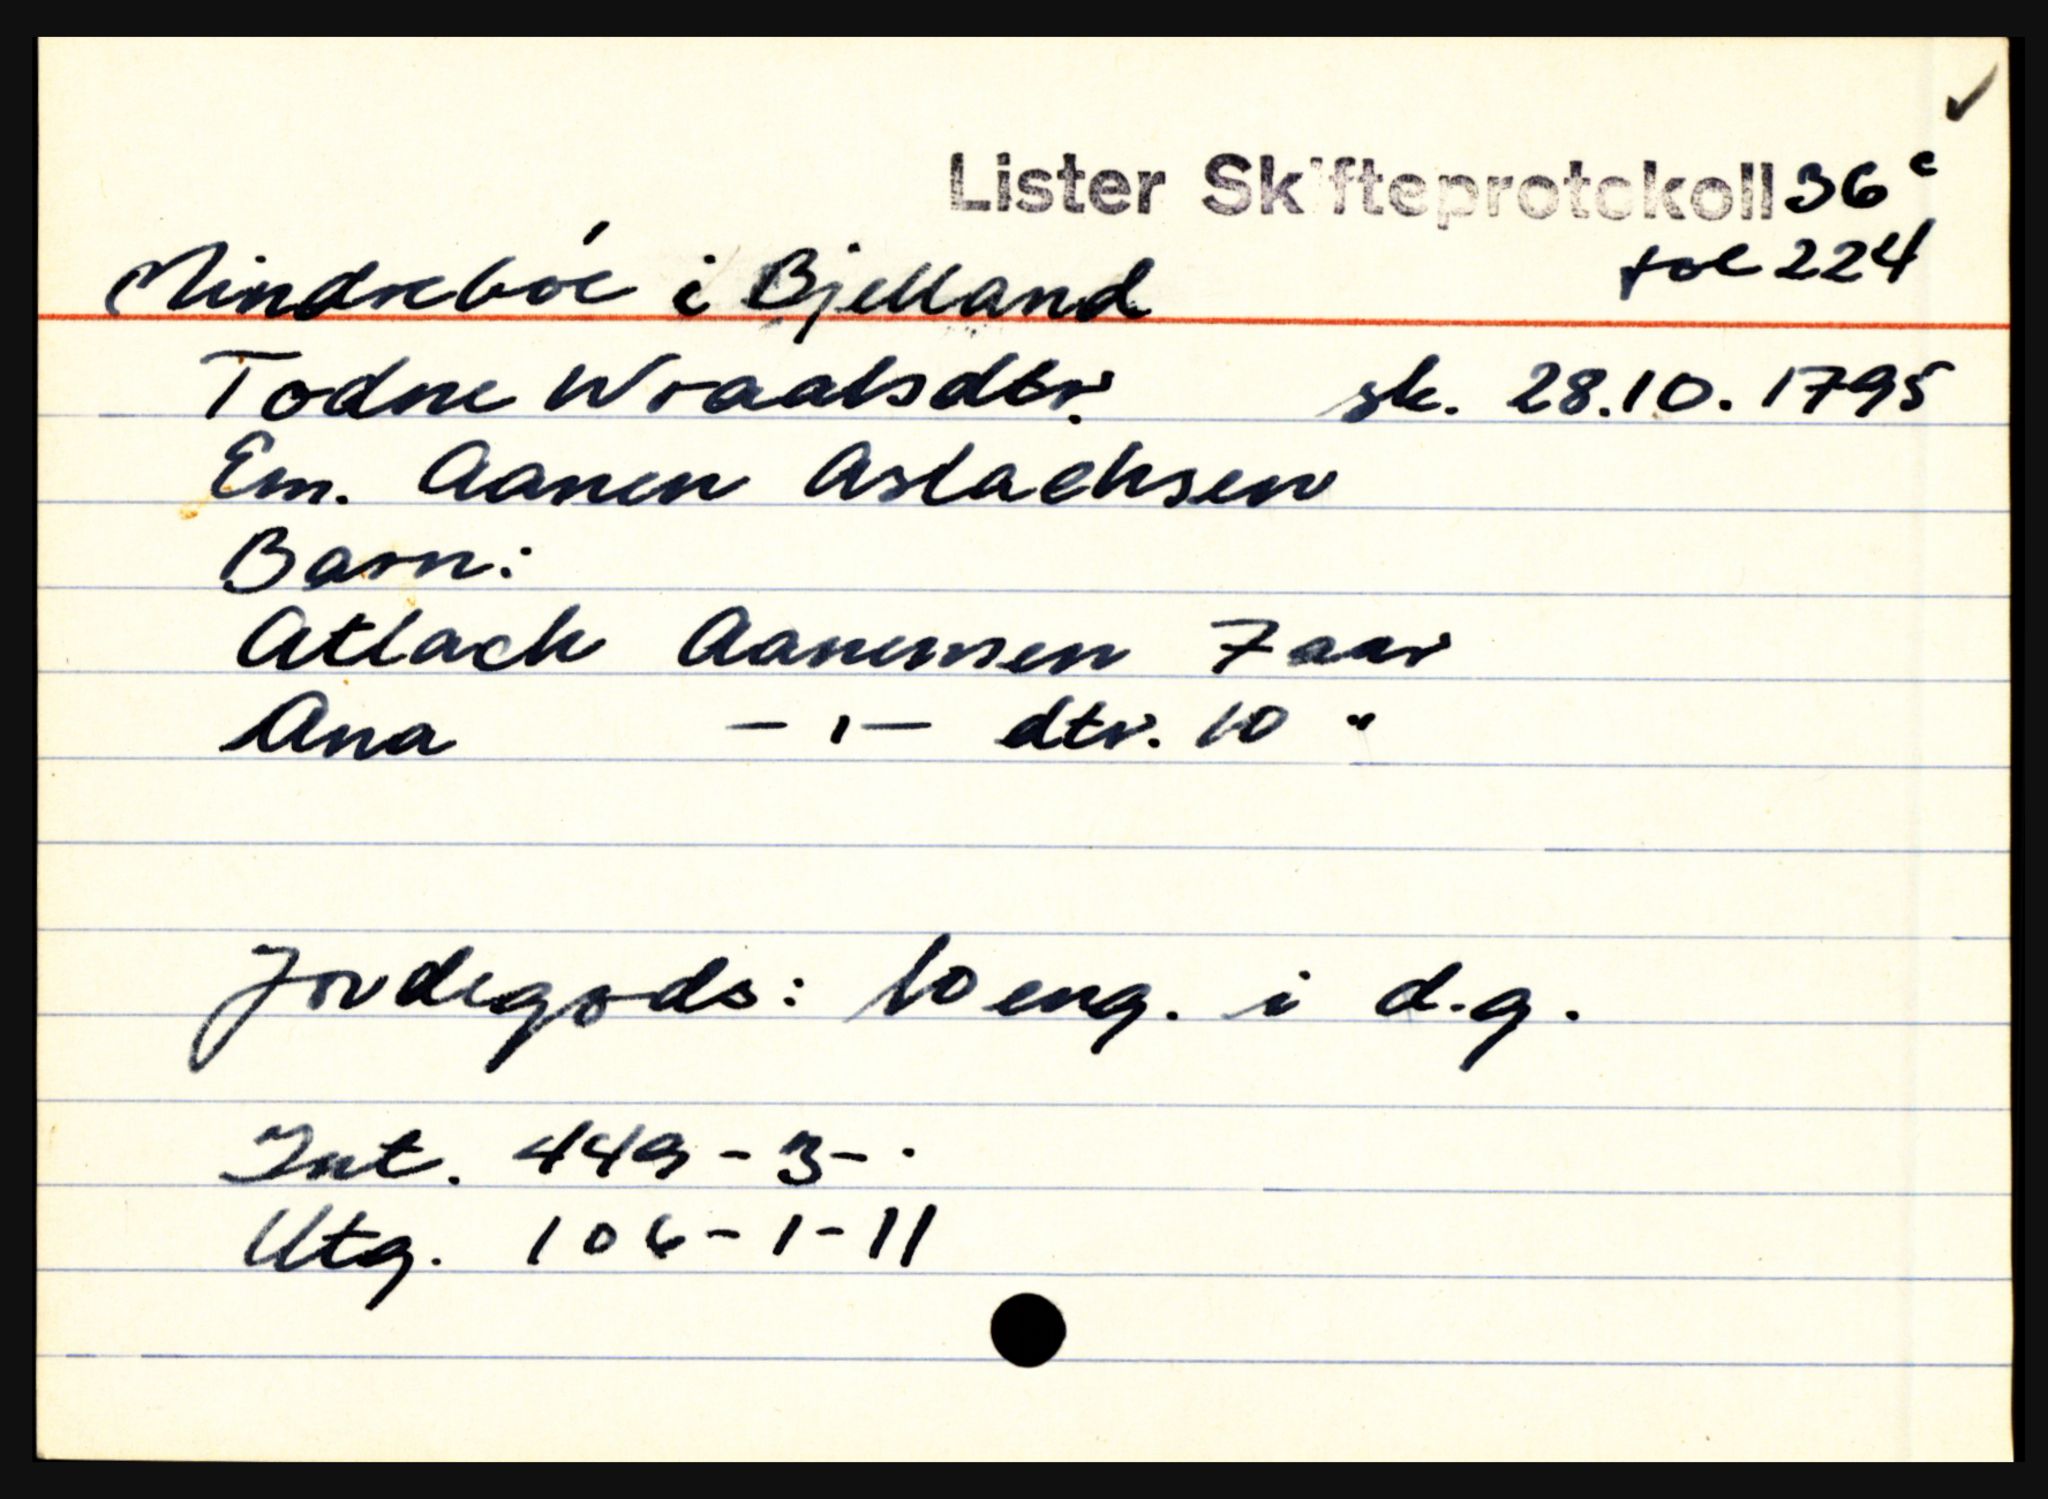 Lister Skifteprotokoll 36 c
fol 224
Mindreböe i Bjelland
Todne Wraalsdtr. sk. 28.10.1795
Em. Aanen Aslachsen
Barn:
Atlach Aanensen 7 aar
Ana —,— dtr. 10 "
Jordegods: 10 eng. i d.g.
Int. 449-3-.
Utg. 106-1-11